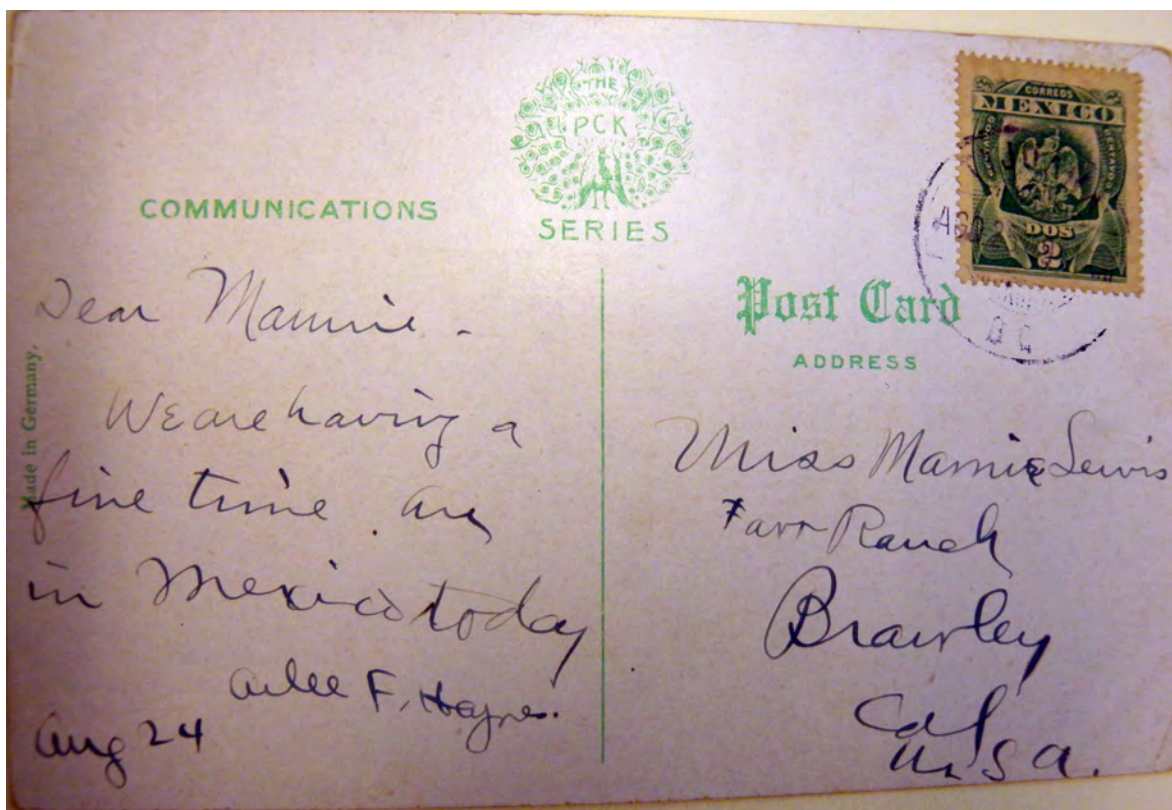 THE
PCK
SERIES
COMMUNICATIONS
Made in Germany.
Dear Mamie -
We are having a
fine time. are
in Mexico today
F. Haynes.
Aug 24
CORREOS
MEXICO
CENTAVOS
CENTAVOS
DOS
2
AGO 2
B C
Post Card
ADDRESS
Miss Mamie Lewis
Farr Ranch
Brawley
Cal
U.S.A.